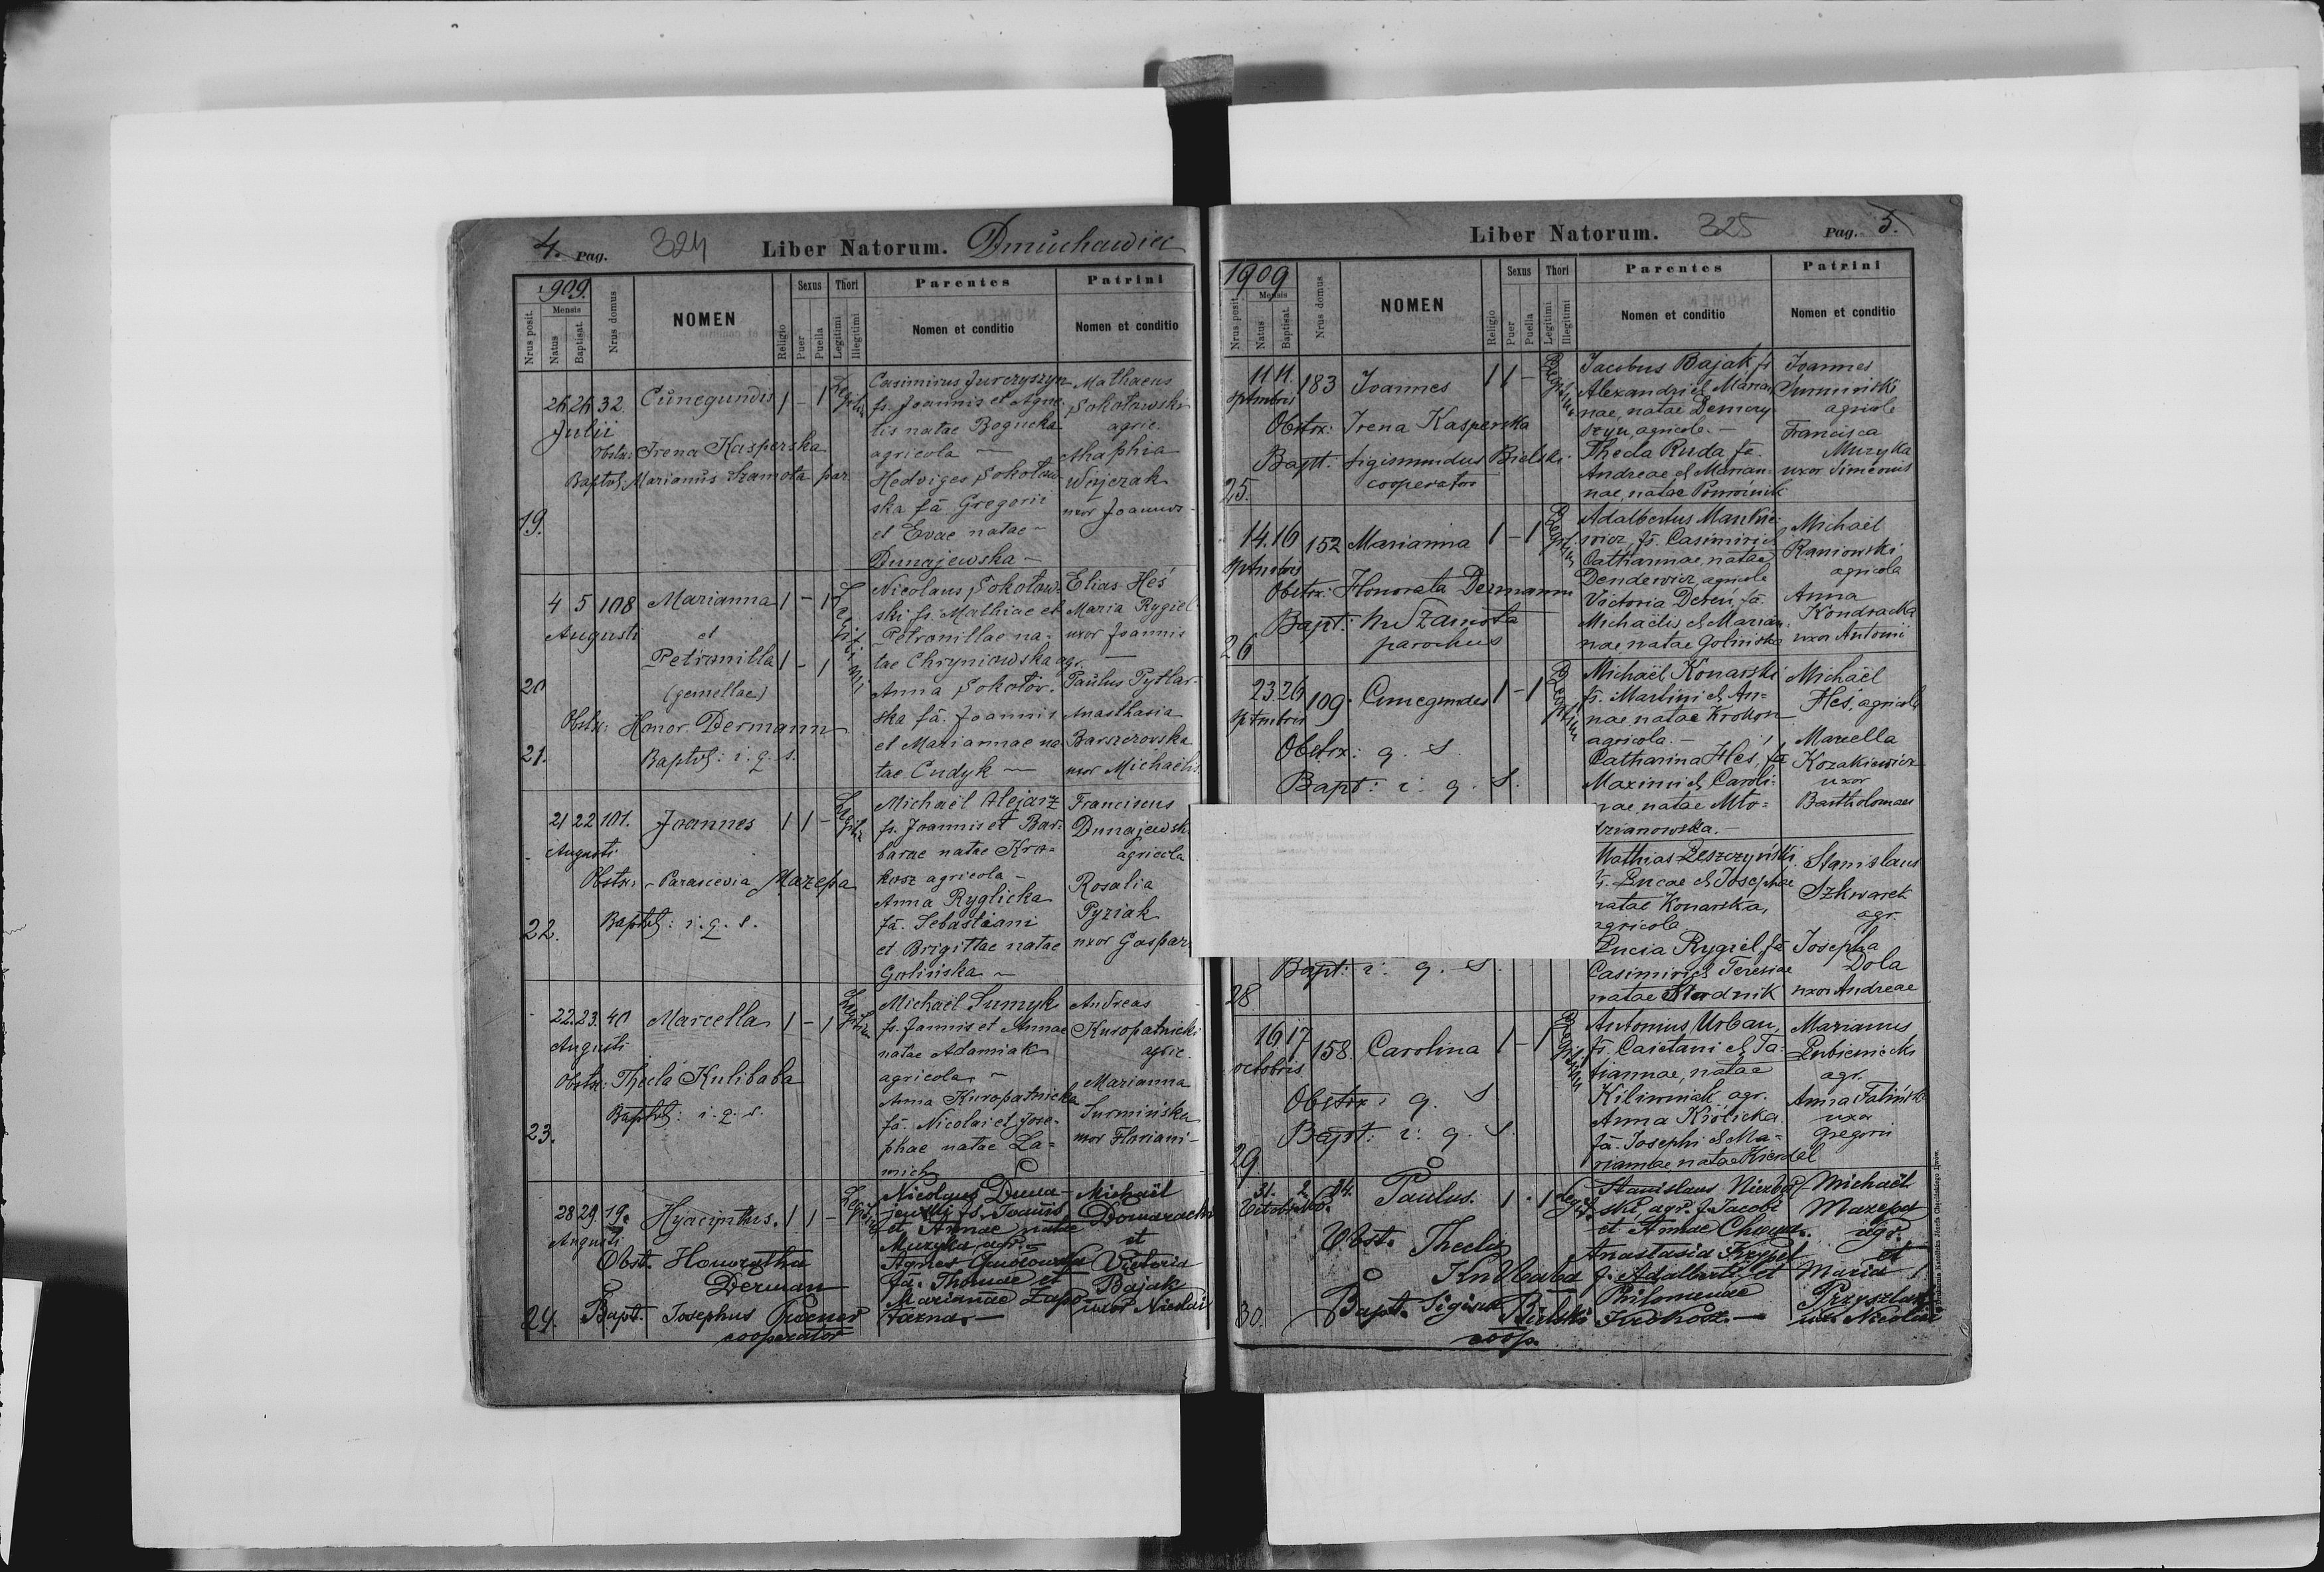 4. Pag. 324 Liber Natorum. Dmuchawiec
1909.
Nrus posit.
Mensis
Natus
Baptisat.
Nrus domus
NOMEN
Religio
Sexus
Puer
Puella
Thori
Legitimi
Illegitimi
Parentes
Nomen et conditio
Patrini
Nomen et conditio
26 26 32. Cunegundis 1 - 1
Julii
Obstx: Irena Kasperska
Baptvt: Marianus Szamota par.
19.
Casimirus Jurczyszyn
fs. Joannis et Agne-
tis natae Bogucka
agricola —
Hedviges Sokołow-
ska fa Gregorii
et Evae natae —
Dunajewska —
Mathaeus
Sokołowski
agric.
Maphia
Wojczak
uxor Joannis
4 5 108 Marianna 1 - 1
Augusti et
Petronilla 1 - 1
20
(gemellae)
Obstx: Honor. Dermann
21. Baptvt: i. q. s.
Legitimi
Nicolaus Sokołow-
ski fs. Mathiae et
Petronillae na-
tae Chryniowska agr.
Anna Sokołow-
ska fa. Joannis
et Mariannae na-
tae Cudyk —
Elias Heś
Maria Rygiel
uxor Joannis
Paulus Pytlar-
Anasthasia
Barszczowska
uxor Michaelis
21 22 101. Joannes 1 1 -
Augusti
Obstx: Parascevia Mazepa
22. Baptvt: i. q. s.
Michaël Alejarz
fs. Joannis et Bar-
barae natae Kro-
kosz agricola —
Anna Ryglicka
fa. Sebastiani
et Brigittae natae
Golińska —
Franciscus
Dunajewski
agricola
Rosalia
Pyziak
uxor Gaspari
22. 23. 40 Marcella 1 - 1
Augusti
Obstx: Thecla Kulibaba
Baptvt: i. q. s.
23.
Michaël Sumyk
fs. Joannis et Annae
natae Adamiak
agricola —
Anna Kuropatnicka
fa. Nicolai et Jose-
phae natae La-
wich
Andreas
Kuropatnicki
agric.
Marianna
Surmińska
uxor Floriani —
28 29. 19. Hyacinthus. 1 1 -
Augusti
Obst. Honoratha
Derman
24. Bapt. Josephus
cooperator
Nicolaus Duna-
jewski fs. Joannis
et Annae natae
Muzyka agr. —
Agnes
fa. Thomae et
Mariannae Zapo-
toczna —
Michaël
Domaracki
et
Victoria
Bajak
uxor Nicolai
Liber Natorum. 325 Pag. 5.
1909
Nrus posit.
Mensis
Natus
Baptisat.
Nrus domus
NOMEN
Religio
Sexus
Puer
Puella
Thori
Legitimi
Illegitimi
Parentes
Nomen et conditio
Patrini
Nomen et conditio
11 11. 183 Joannes 1 1 -
Septembris
Obstx: Irena Kasperska
Baptt: Sigismundus Bielski
cooperator
25.
Jacobus Bajak fs
Alexandri et Marian-
nae, natae Demczy-
szyn, agricola. —
Thecla Ruda fa.
Andreae et Marian-
nae, natae Pomiernik
Joannes
Surmiński
agricola
Francisca
Muzyka
uxor Simeonis
14. 16 152 Marianna 1 - 1
Septembris
Obstx: Honorata Dermann
Bapt: M Szamota
parochus
26
Adalbertus Mankie-
wicz, fs. Casimiri et
Catharinnae, natae
Dendewicz, agricola
Victoria Dereń, fa.
Michaëlis et Marian-
nae, natae Golińska
Michaël
Raniowski
agricola
Anna
Kondracka
uxor Antonii
23. 26 109. Cunegundes 1 - 1
Septembris
Obstx: q. s.
Bapt: i. q. s.
Michaël Konarski
fs. Martini et An-
nae, natae Krokosz
agricola. —
Catharina Heś, fa
Maximi et Caroli-
nae, natae Mło-
dzianowska. —
Michaël
Heś, agricola
Marcella
Kozakiewicz
uxor
Bartholomaei
Mathias Leszczyński
fs. Lucae et Josephae
natae Konarska,
agricola
Lucia Rygiel, fa
Casimiri et Teresiae
natae
Stanislaus
Szkwarek
agr.
Josepha
Dola
uxor Andreae
Bapt: i. q. s.
28.
16 17 158. Carolina 1 - 1
octobris
Obstx: q. s
Bapt: i. q. s.
29.
Antonius Urban,
fs. Caietani et Ta-
tiannae, natae
Kiliwniak agr.
Anna Królicka
fa. Josephi et Ma-
riannae natae
Marianus
Lubieniecki
agr.
Anna Falińska
uxor
Gregorii
31. 2. 24. Paulus. 1 . 1
Octobr. Nov.
Obst. Thecla
Kulibaba
30. Bapt. Sigism Bielski
coop.
Stanislaus
ski agr. f. Jacobi
et Annae
Anastasia Krypel
f. Adalberti et
Philomenae
Krokosz. —
Michaël
Mazepa
agr.
et
Maria
Przyszlak
uxor Nicolai